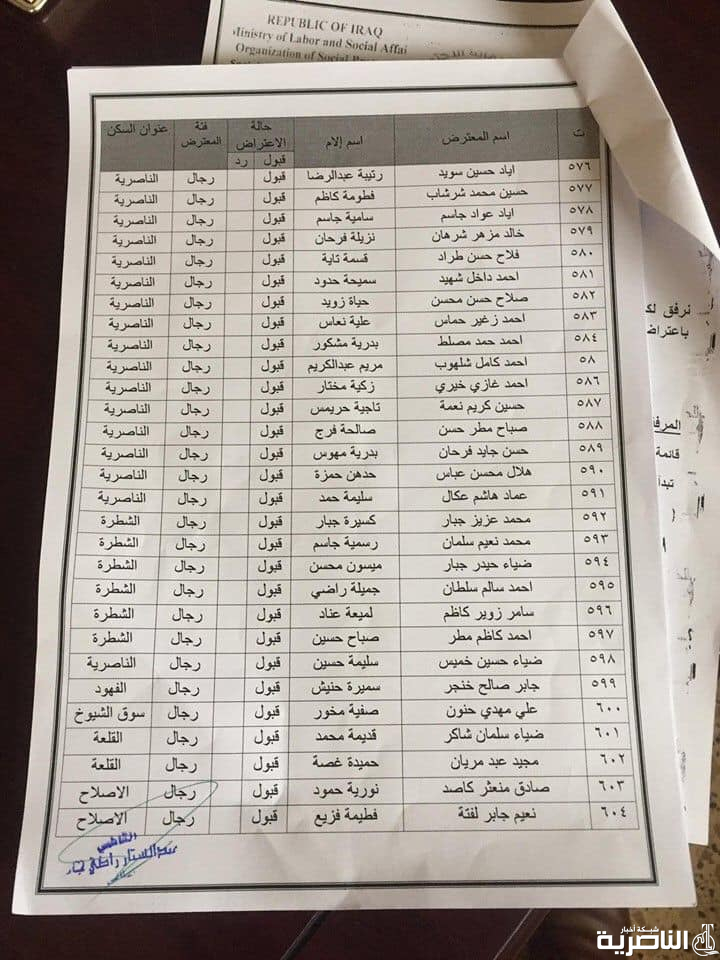 REPUBLIC OF IRAQ
Ministry of Labor and Social Affai
Organization of Social
ت اسم المعترض اسم الام حالة الاعتراض فئة المعترض عنوان السكن
قبول رد
٥٧٦ اياد حسين سويد رتيبة عبدالرضا قبول رجال الناصرية
٥٧٧ حسين محمد شرشاب فطومة كاظم قبول رجال الناصرية
٥٧٨ اياد عواد جاسم سامية جاسم قبول رجال الناصرية
٥٧٩ خالد مزهر شرهان نزيلة فرحان قبول رجال الناصرية
٥٨٠ فلاح حسن طراد قسمة تاية قبول رجال الناصرية
٥٨١ احمد داخل شهيد سميحة حدود قبول رجال الناصرية
٥٨٢ صلاح حسن محسن حياة زويد قبول رجال الناصرية
٥٨٣ احمد زغير حماس علية نعاس قبول رجال الناصرية
٥٨٤ احمد حمد مصلط بدرية مشكور قبول رجال الناصرية
٥٨ احمد كامل شلهوب مريم عبدالكريم قبول رجال الناصرية
٥٨٦ احمد غازي خيري زكية مختار قبول رجال الناصرية
٥٨٧ حسين كريم نعمة تاجية حريمس قبول رجال الناصرية
٥٨٨ صباح مطر حسن صالحة فرج قبول رجال الناصرية
٥٨٩ حسن جايد فرحان بدرية مهوس قبول رجال الناصرية
٥٩٠ هلال محسن عباس حدهن حمزة قبول رجال الناصرية
٥٩١ عماد هاشم عكال سليمة حمد قبول رجال الناصرية
٥٩٢ محمد عزيز جبار كسيرة جبار قبول رجال الشطرة
٥٩٣ محمد نعيم سلمان رسمية جاسم قبول رجال الشطرة
٥٩٤ ضياء حيدر جبار ميسون محسن قبول رجال الشطرة
٥٩٥ احمد سالم سلطان جميلة راضي قبول رجال الشطرة
٥٩٦ سامر زوير كاظم لميعة عناد قبول رجال الشطرة
٥٩٧ احمد كاظم مطر صباح حسين قبول رجال الشطرة
٥٩٨ ضياء حسين خميس سليمة حسين قبول رجال الناصرية
٥٩٩ جابر صالح خنجر سميرة حنيش قبول رجال الفهود
٦٠٠ علي مهدي حنون صفية مخور قبول رجال سوق الشيوخ
٦٠١ ضياء سلمان شاكر قديمة محمد قبول رجال القلعة
٦٠٢ مجيد عبد مريان حميدة غصة قبول رجال القلعة
٦٠٣ صادق منعثر كاصد نورية حمود قبول رجال الاصلاح
٦٠٤ نعيم جابر لفتة فطيمة فزيع قبول رجال الاصلاح
نرفق لك
باعتراض
المرفق
قائمة
تبدأ
شبكة أخبار
الناصرية